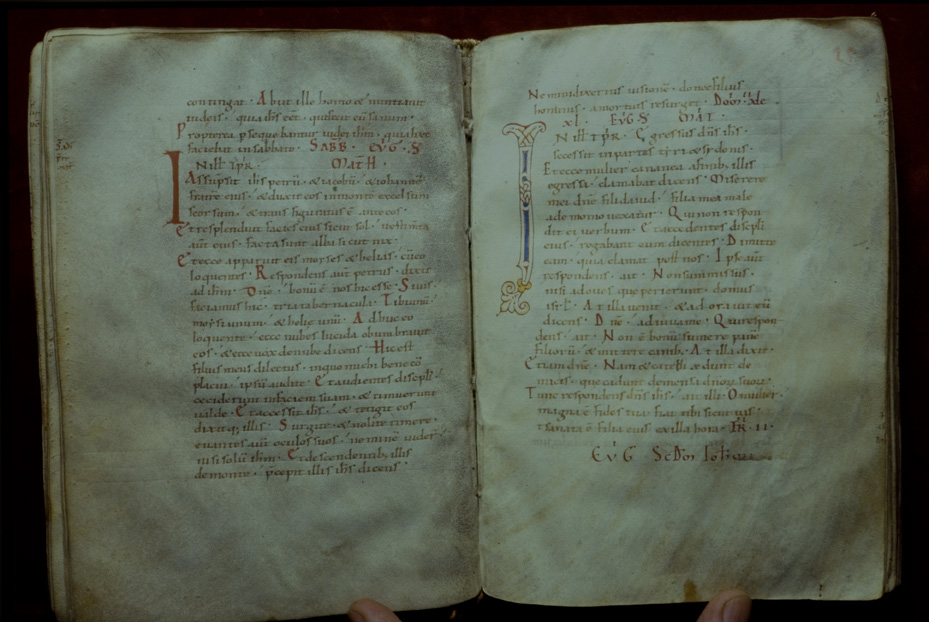 contingat. Abiit ille homo & nuntiauit
iudeis. quia ihs eet. qui fecit eū sanum.
Propterea psequebantur iudei ihm. quia hec
faciebat in sabbato. SABB. EVG. S
Nill tpr. MATH.
Assūpsit ihs petrū. & iacobū. & iohannē
fratrē eius. & duxit eos in montē excelsum
seorsum. & transfiguratus ē ante eos.
Et resplenduit facies eius sicut sol. uestimta
aut eius. facta sunt alba sicut nix.
Et ecce apparuit eis moyses & helias. cū eo
loquentes. Respondens aut petrus. dixit
ad ihm. Dne. bonū ē nos hic esse. Si uis.
faciamus hic. tria tabernacula. Tibi unū.
moysi unum. & helie unū. Adhuc eo
loquente. ecce nubes lucida obumbrauit
eos. & ecce uox de nube dicens. Hic est
filius meus dilectus. in quo michi bene cō
placui. ipsū audite. Et audientes discipli.
ceciderunt in faciem suam. & timuerunt
ualde. Et accessit ihs. & tetigit eos
dixitq; illis. Surgite. & nolite timere.
Leuantes aut oculos suos. neminē uider
nisi solū ihm. Et descendentib; illis
de monte. pcepit illis ihs dicens.
Nemini dixeritis uisionē. donec filius
hominis. a mortuis resurgat. Dom. II. xl̄e
xl. EVG S MAT.
Nill tpr. Egressus dns ihs.
secessit in partes tyri & sydonis.
Et ecce mulier cananea a finib; illis
egressa. clamabat dicens. Miserere
mei dne fili dauid. filia mea male
a demonio uexatur. Qui non respon
dit ei uerbum. Et accedentes discipli
eius. rogabant eum dicentes. Dimitte
eam. quia clamat post nos. Ipse aut
respondens. ait. Non sum missus.
nisi ad oues que perierunt. domus
isrl. At illa uenit. & adorauit eū
dicens. Dne. adiuua me. Qui respon
dens. ait. Non ē bonū sumere panē
filiorū. & mittere canib;. At illa dixit.
Etiam dne. Nam & catelli edunt de
micis. que cadunt de mensa dnorū suorū.
Tunc respondens dns ihs. ait illi. O mulier.
magna ē fides tua. fiat tibi sicut uis.
& sanata ē filia eius ex illa hora. FR. II.
EVG Scdm Ioh